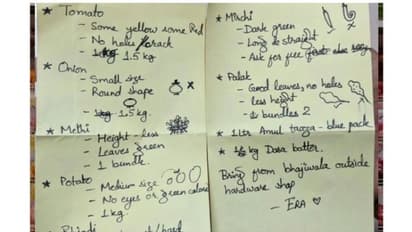 ★ Tomato
– Some yellow some Red
– No holes / crack
– 1.5 kg
★ Onion
– Small size
– Round shape
– 1.5 kg.
★ Methi
– Height - less
– Leaves green
– 1 bundle.
★ Potato
– Medium size
– No eyes or green colour
– 1 kg.
★ Bhindi
★ Mirchi
– Dark green
– Long & straight
– Ask for free
★ Palak
– Good leaves, no holes
– less height
– bundles 2
★ 1 ltr Amul taaza - blue pack
★ kg Dosa batter.
Bring from bhajiwala outside
hardware shop
– ERA ♡